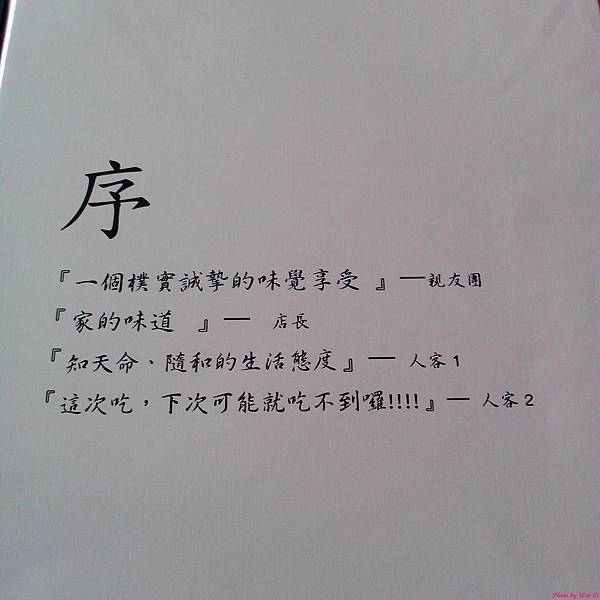 序
『一個樸實誠摯的味覺享受 』—親友團
『家的味道 』— 店長
『知天命、隨和的生活態度』— 人客1
『這次吃，下次可能就吃不到囉!!!!』— 人客2
Photo by Wan Li